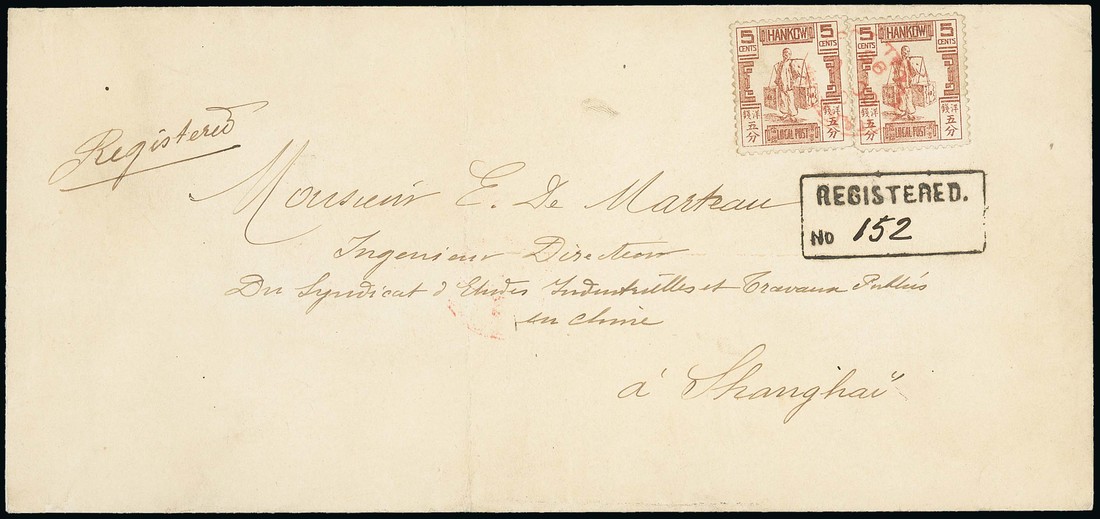 5 HANKOW 5
CENTS CENTS
洋錢
五分 五分
LOCAL POST
5 HANKOW 5
CENTS CENTS
洋錢
五分 五分
LOCAL POST
Registered
REGISTERED.
No 152
Monsieur E. De Marteau
Ingenieur Directeur
Du Syndicat d'Etudes Industrielles et Travaux Publics
en Chine
à Shanghaï